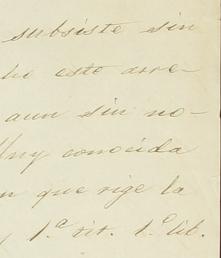 subsiste sin
ho este arre-
aun sin no-
Muy conocida
n que rige la
y 1.ª tit. 1.º lib.